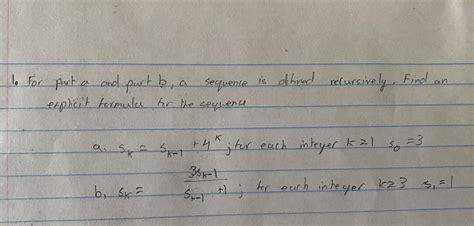 1. For part a and part b, a sequence is defined recursively. Find an
explicit formula for the sequence
a. sₖ = sₖ₋₁ + 4ᵏ ; for each integer k ≥ 1 s₀ = 3
b, sₖ = 3sₖ₋₁ / (sₖ₋₁ + 1) ; for each integer k ≥ 3 s₁ = 1